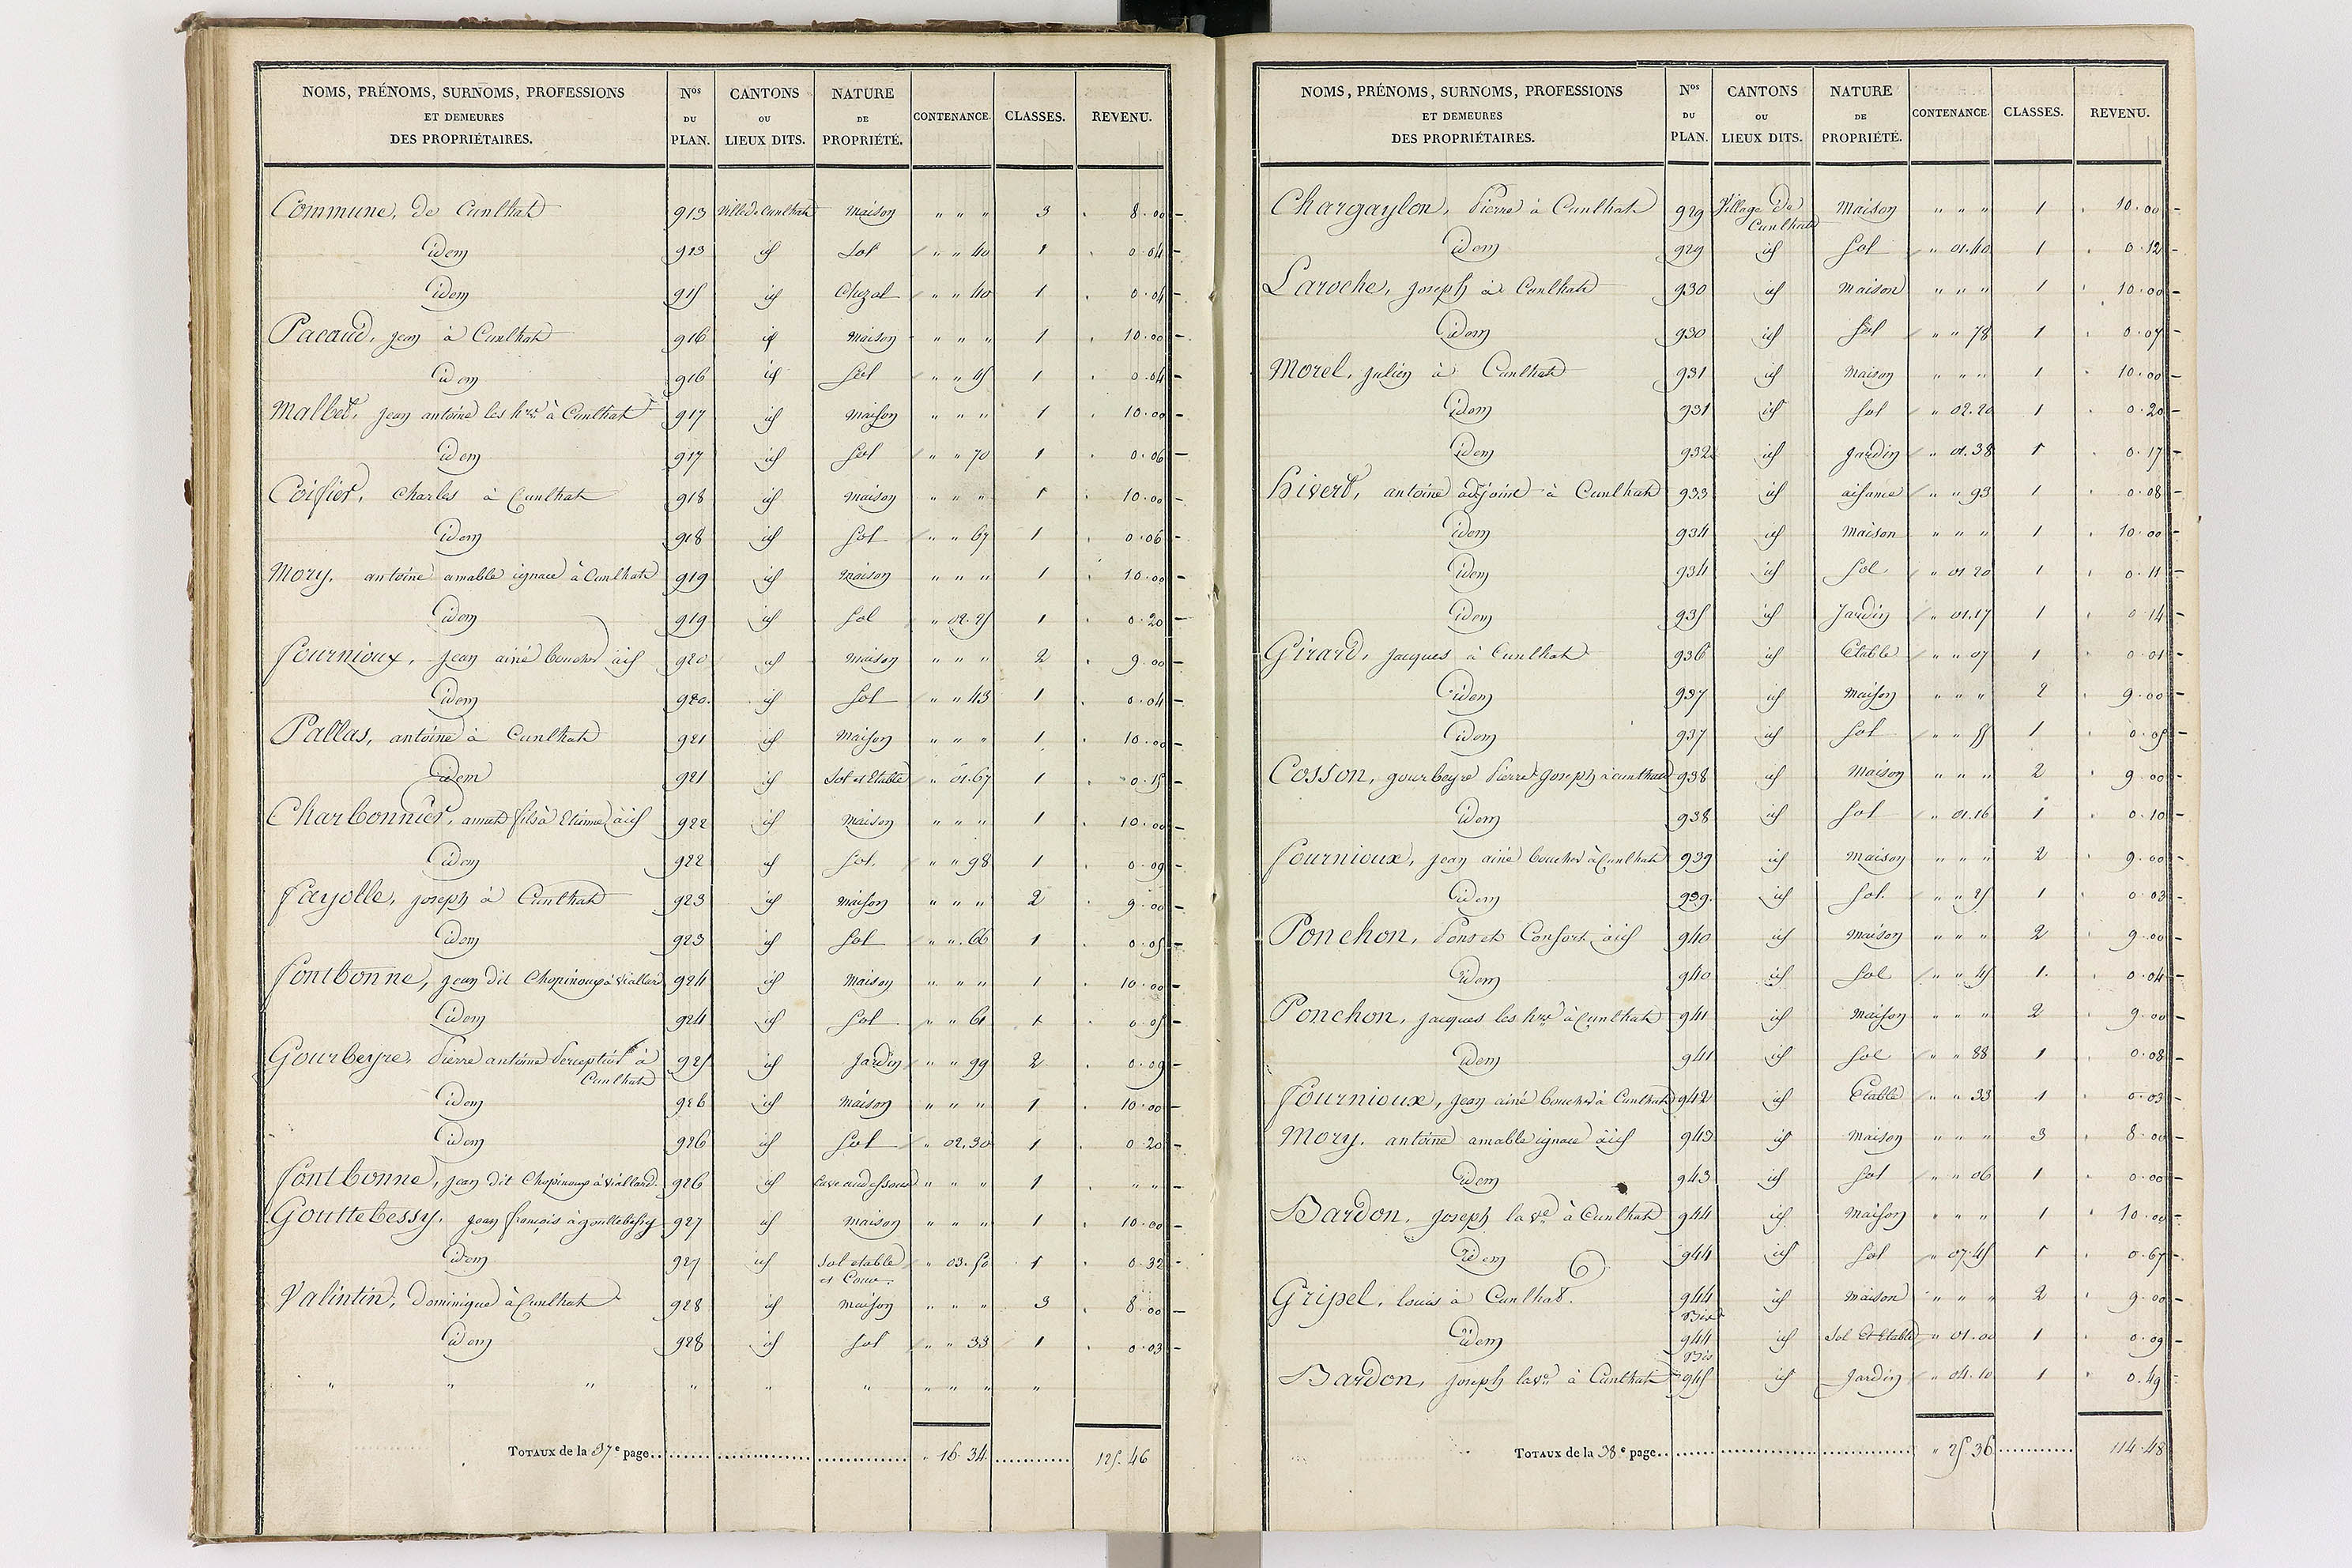 NOMS, PRÉNOMS, SURNOMS, PROFESSIONS ET DEMEURES DES PROPRIÉTAIRES. Nos DU PLAN. CANTONS OU LIEUX DITS. NATURE DE PROPRIÉTÉ. CONTENANCE. CLASSES. REVENU.
Commune, de Cunlhat 913 Ville de Cunlhat Maison " " " 3 8.00
idem 913 id Sol " " 40 1 0.04
idem 915 id Chezal " " 40 1 0.04
Pacaud, jean à Cunlhat 916 id Maison " " " 1 10.00
idem 916 id Sol " " 45 1 0.04
Malbet, jean antoine les hrs à Cunlhat 917 id Maison " " " 1 10.00
idem 917 id Sol " " 70 1 0.06
Coiffier, Charles à Cunlhat 918 id Maison " " " 1 10.00
idem 918 id Sol " " 67 1 0.06
Mory, antoine amable ignace à Cunlhat 919 id Maison " " " 1 10.00
idem 919 id Sol " 02.25 1 0.20
Fournioux, jean ainé boucher à id 920 id Maison " " " 2 9.00
idem 920 id Sol " " 43 1 0.04
Pallas, antoine à Cunlhat 921 id Maison " " " 1 10.00
idem 921 id Sol et Etable " 01.67 1 0.15
Charbonnier, amant fils à Etienne à id 922 id Maison " " " 1 10.00
idem 922 id Sol. " " 98 1 0.09
Fayolle, joseph à Cunlhat 923 id Maison " " " 2 9.00
idem 923 id Sol " " 66 1 0.05
Fontbonne, jean dit Chopinoux à Viallard 924 id Maison " " " 1 10.00
idem 924 id Sol " " 61 1 0.05
Gourbeyre, Pierre antoine Percepteur à 925 id Jardin " " 99 2 0.09
Cunlhat
idem 926 id Maison " " " 1 10.00
idem 926 id Sol " 02.30 1 0.20
Fontbonne, jean dit Chopinoux à Viallard 926 id Cave au dessous " " " 1 " "
Gouttebessy, jean françois à gouttebessy 927 id Maison " " " 1 10.00
idem 927 id Sol etable 03.50 1 0.32
et Cour.
Valintin, Dominique à Cunlhat 928 id Maison " " " 3 8.00
idem 928 id Sol " " 33 1 0.03
" " " " " " " " " "
TOTAUX de la 37e page " 16.34 125.46
NOMS, PRÉNOMS, SURNOMS, PROFESSIONS ET DEMEURES DES PROPRIÉTAIRES. Nos DU PLAN. CANTONS OU LIEUX DITS. NATURE DE PROPRIÉTÉ. CONTENANCE. CLASSES. REVENU.
Chargaylon, Pierre à Cunlhat 929 Village de Maison " " " 1 10.00
Cunlhat
idem 929 id Sol " 01.40 1 0.12
Laroche, joseph à Cunlhat 930 id Maison " " " 1 10.00
idem 930 id Sol " " 78 1 0.07
Morel, julien à Cunlhat 931 id Maison " " " 1 10.00
idem 931 id Sol " 02.20 1 0.20
idem 932 id Jardin " 01.38 1 0.17
Hivert, antoine adjoint à Cunlhat 933 id aisance " " 93 1 0.08
idem 934 id Maison " " " 1 10.00
idem 934 id Sol. " 01 20 1 0.11
idem 935 id Jardin " 01.17 1 0.14
Girard, jacques à Cunlhat 936 id Etable " " 07 1 0.01
idem 937 id Maison " " " 2 9.00
idem 937 id Sol " " 55 1 0.05
Cosson, gourbeyre Pierre joseph à cunlhat 938 id Maison " " " 2 9.00
idem 938 id Sol " 01.16 1 0.10
Fournioux, jean ainé boucher à Cunlhat 939 id Maison " " " 2 9.00
idem 939 id Sol. " " 25 1 0.03
Ponchon, Pons et Consort à id 940 id Maison " " " 2 9.00
idem 940 id Sol " " 45 1. 0.04
Ponchon, jacques les hrs à Cunlhat 941 id Maison " " " 2 9.00
idem 941 id Sol " " 88 1 0.08
Fournioux, jean ainé boucher à Cunlhat 942 id Etable " " 33 1 0.03
Mory, antoine amable ignace à id 943 id Maison " " " 3 8.00
idem 943 id Sol " " 06 1 0.00
Bardon, joseph la ve à Cunlhat 944 id Maison " " " 1 10.00
idem 944 id Sol " 07.45 1 0.67
Gripel, louis à Cunlhat. 944 id Maison " " " 2 9.00
Bis
idem 944 id Sol Et Etable " 01.00 1 0.09
Bis
Bardon, joseph la ve à Cunlhat 945 id Jardin " 04.10 1 0.49
TOTAUX de la 38e page " 25.36 114.48